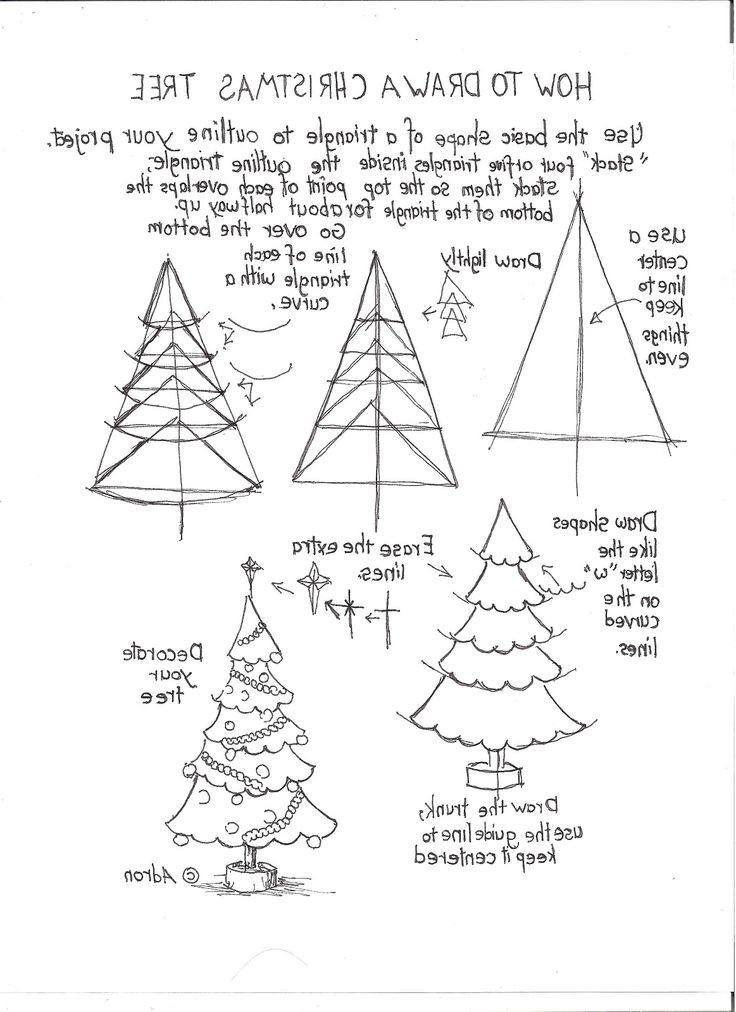 HOW TO DRAW A CHRISTMAS TREE
Use the basic shape of a triangle to outline your project.
"Stack" four or five triangles inside the outline triangle;
stack them so the top point of each overlaps the
bottom of the triangle for about halfway up.
Use a
center
line to
keep
things
even.
Draw lightly
Go over the bottom
line of each
triangle with a
curve.
Draw shapes
like the
letter "w"
on the
curved
lines.
Erase the extra
lines.
Draw the trunk,
use the guideline to
keep it centered
Decorate
your
tree
© Adron